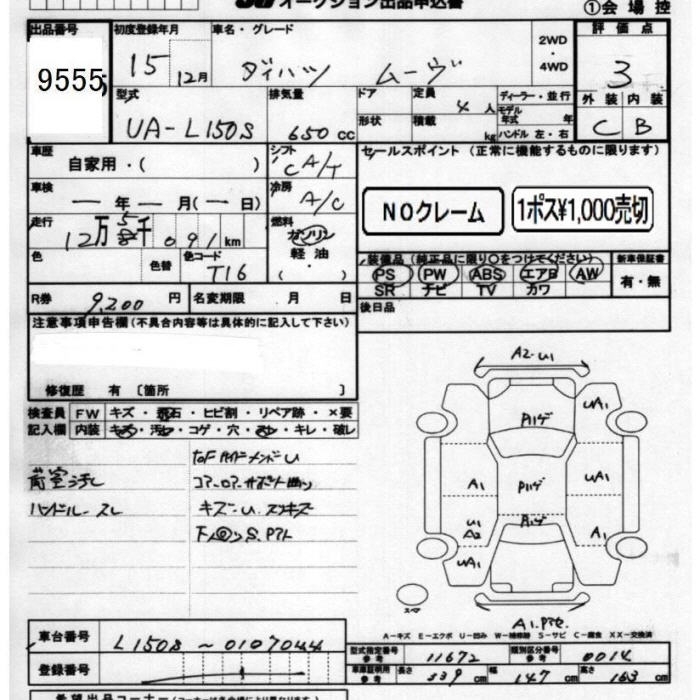 オークション出品申込書
①会場控
出品番号
9555
初度登録年月
15
12月
車名・グレード
ダイハツ ムーヴ
2WD
・
4WD
評価点
3
型式
UA-L150S
排気量
650cc
ドア
形状
定員
4人
積載
kg
ディーラー・並行
モデル年式 年
ハンドル 左・右
外装 内装
C B
車歴
自家用・( )
シフト
CA/T
セールスポイント (正常に機能するものに限ります)
車検
ー年ー月(ー日)
冷房
A/C
NOクレーム
1ポス¥1,000売切
走行
12万5千091km
燃料
ガソリン
軽油
色
色替
色コード
T16
装備品 (純正品に限り○をつけてください)
PS PW ABS エアB AW
SR ナビ TV カワ
新車保証書
有・無
R券
9,200円
名変期限 月 日
後日品
注意事項申告欄(不具合内容等は具体的に記入して下さい)
修復歴 有 [箇所 ]
検査員
記入欄
FW キズ・飛石・ヒビ割・リペア跡・×要
内装 キズ・汚レ・コゲ・穴・スレ・キレ・破レ
荷室汚レ
ハンドルスレ
A2・U1
UA1
A1
UA1
U1
A2
A1
UA1
スマ
A-キズ E-エクボ U-凹み W-補修跡 S-サビ C-腐食 XX-交換済
車台番号
L150S-0107044
登録番号
型式指定番号
参考
11672
類別区分番号
参考
0014
車庫証明用
参考
長さ 339cm 幅 147cm 高さ 163cm
希望出品コーナー